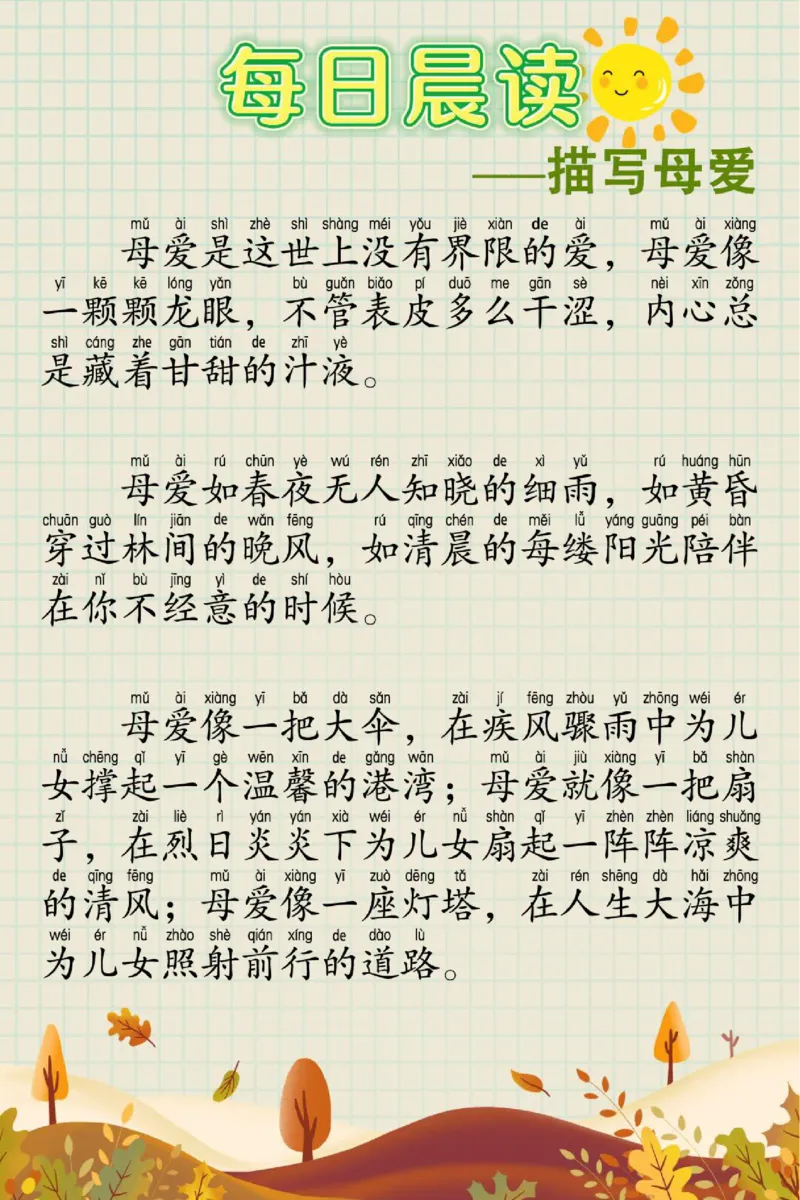 每日晨读
——描写母爱
mǔ ài shì zhè shì shàng méi yǒu jiè xiàn de ài mǔ ài xiàng
母爱是这世上没有界限的爱，母爱像
yī kē kē lóng yǎn bù guǎn biǎo pí duō me gān sè nèi xīn zǒng
一颗颗龙眼，不管表皮多么干涩，内心总
shì cáng zhe gān tián de zhī yè
是藏着甘甜的汁液。
mǔ ài rú chūn yè wú rén zhī xiǎo de xì yǔ rú huáng hūn
母爱如春夜无人知晓的细雨，如黄昏
chuān guò lín jiān de wǎn fēng rú qīng chén de měi lǚ yáng guāng péi bàn
穿过林间的晚风，如清晨的每缕阳光陪伴
zài nǐ bù jīng yì de shí hòu
在你不经意的时候。
mǔ ài xiàng yī bǎ dà sǎn zài jí fēng zhòu yǔ zhōng wéi ér
母爱像一把大伞，在疾风骤雨中为儿
nǚ chēng qǐ yī gè wēn xīn de gǎng wān mǔ ài jiù xiàng yī bǎ shàn
女撑起一个温馨的港湾；母爱就像一把扇
zǐ zài liè rì yán yán xià wéi ér nǚ shàn qǐ yī zhèn zhèn liáng shuǎng
子，在烈日炎炎下为儿女扇起一阵阵凉爽
de qīng fēng mǔ ài xiàng yī zuò dēng tǎ zài rén shēng dà hǎi zhōng
的清风；母爱像一座灯塔，在人生大海中
wéi ér nǚ zhào shè qián xíng de dào lù
为儿女照射前行的道路。